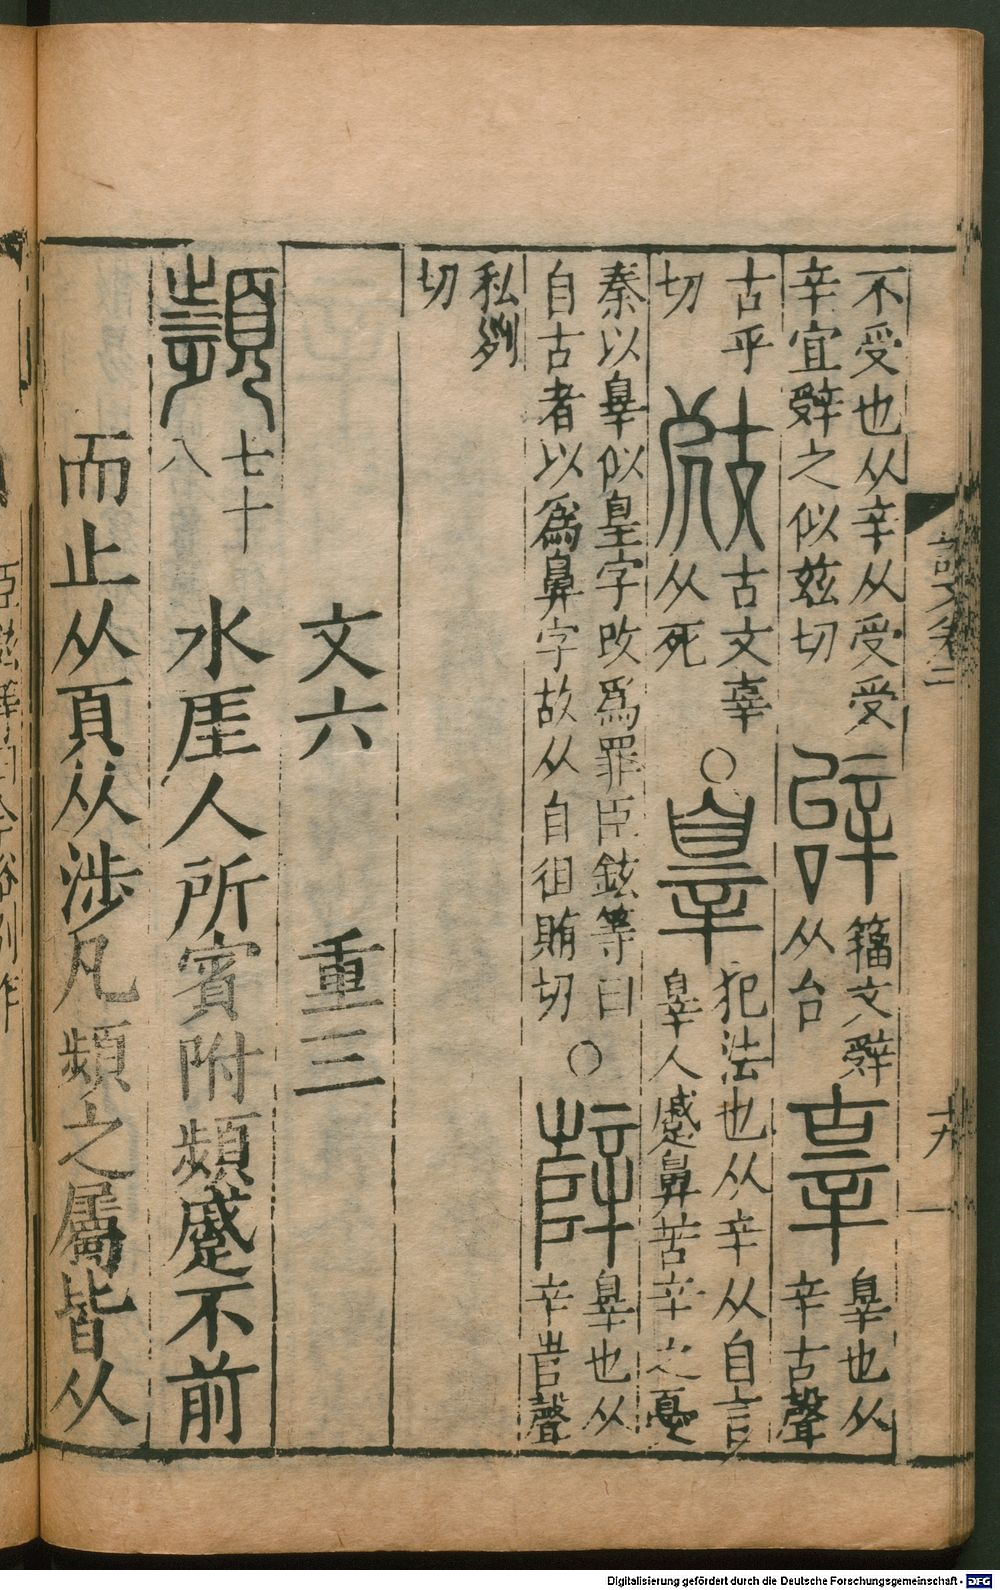 說文卷二 十九
不受也从辛从受受
辛宜辤之似茲切
辝
籒文辤
从台
辜
辠也从
辛古聲
古乎
切
𣦠
古文辜
从死
○
辠
犯法也从辛从自言
辠人蹙鼻苦辛之憂
秦以辠似皇字改爲罪臣鉉等曰
自古者以爲鼻字故从自徂賄切
○
辥
辠也从
辛𡴎聲
私列
切
文六 重三
顰
七十
八
水厓人所賓附頻蹙不前
而止从頁从涉凡頻之屬皆从
臣鉉等曰今俗別作
Digitalisierung gefördert durch die Deutsche Forschungsgemeinschaft - DFG